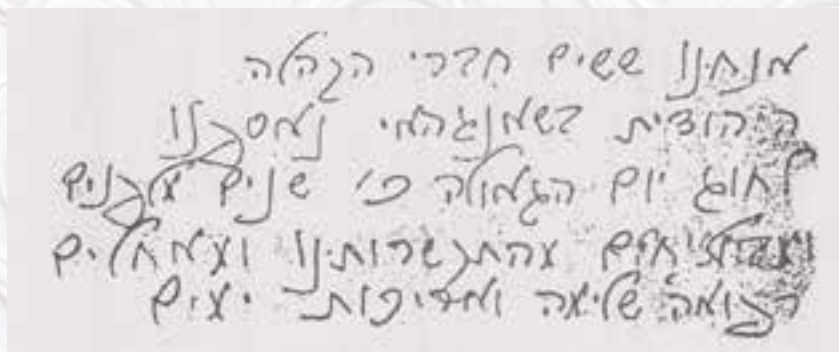 אנחנו ששים חברי הקהלה
היהודית בשאנגהאי נאספנו
לחוג יום הגאולה כ' שנים מלפנים
מהתקשרותינו ומאחלים
רפואה שלימה ואריכות ימים